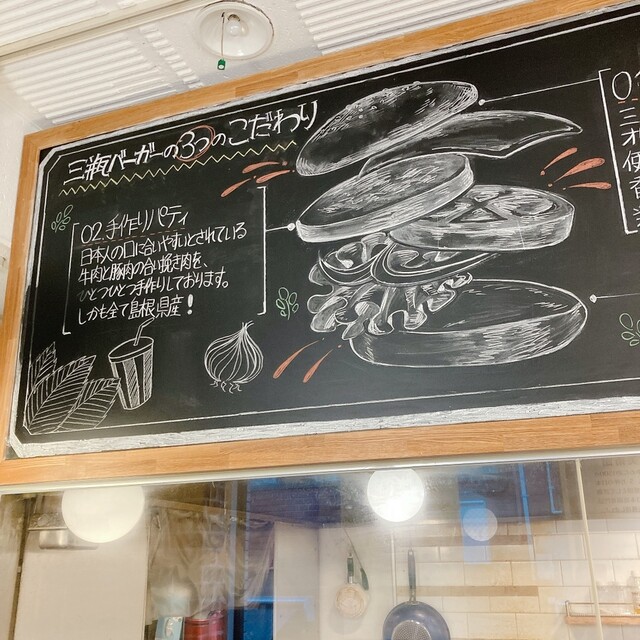 三瓶バーガーの3つのこだわり
02.手作りパティ
日本人の口に合いやすいとされている
牛肉と豚肉の合い挽き肉を、
ひとつひとつ手作りしております。
しかも全て島根県産!